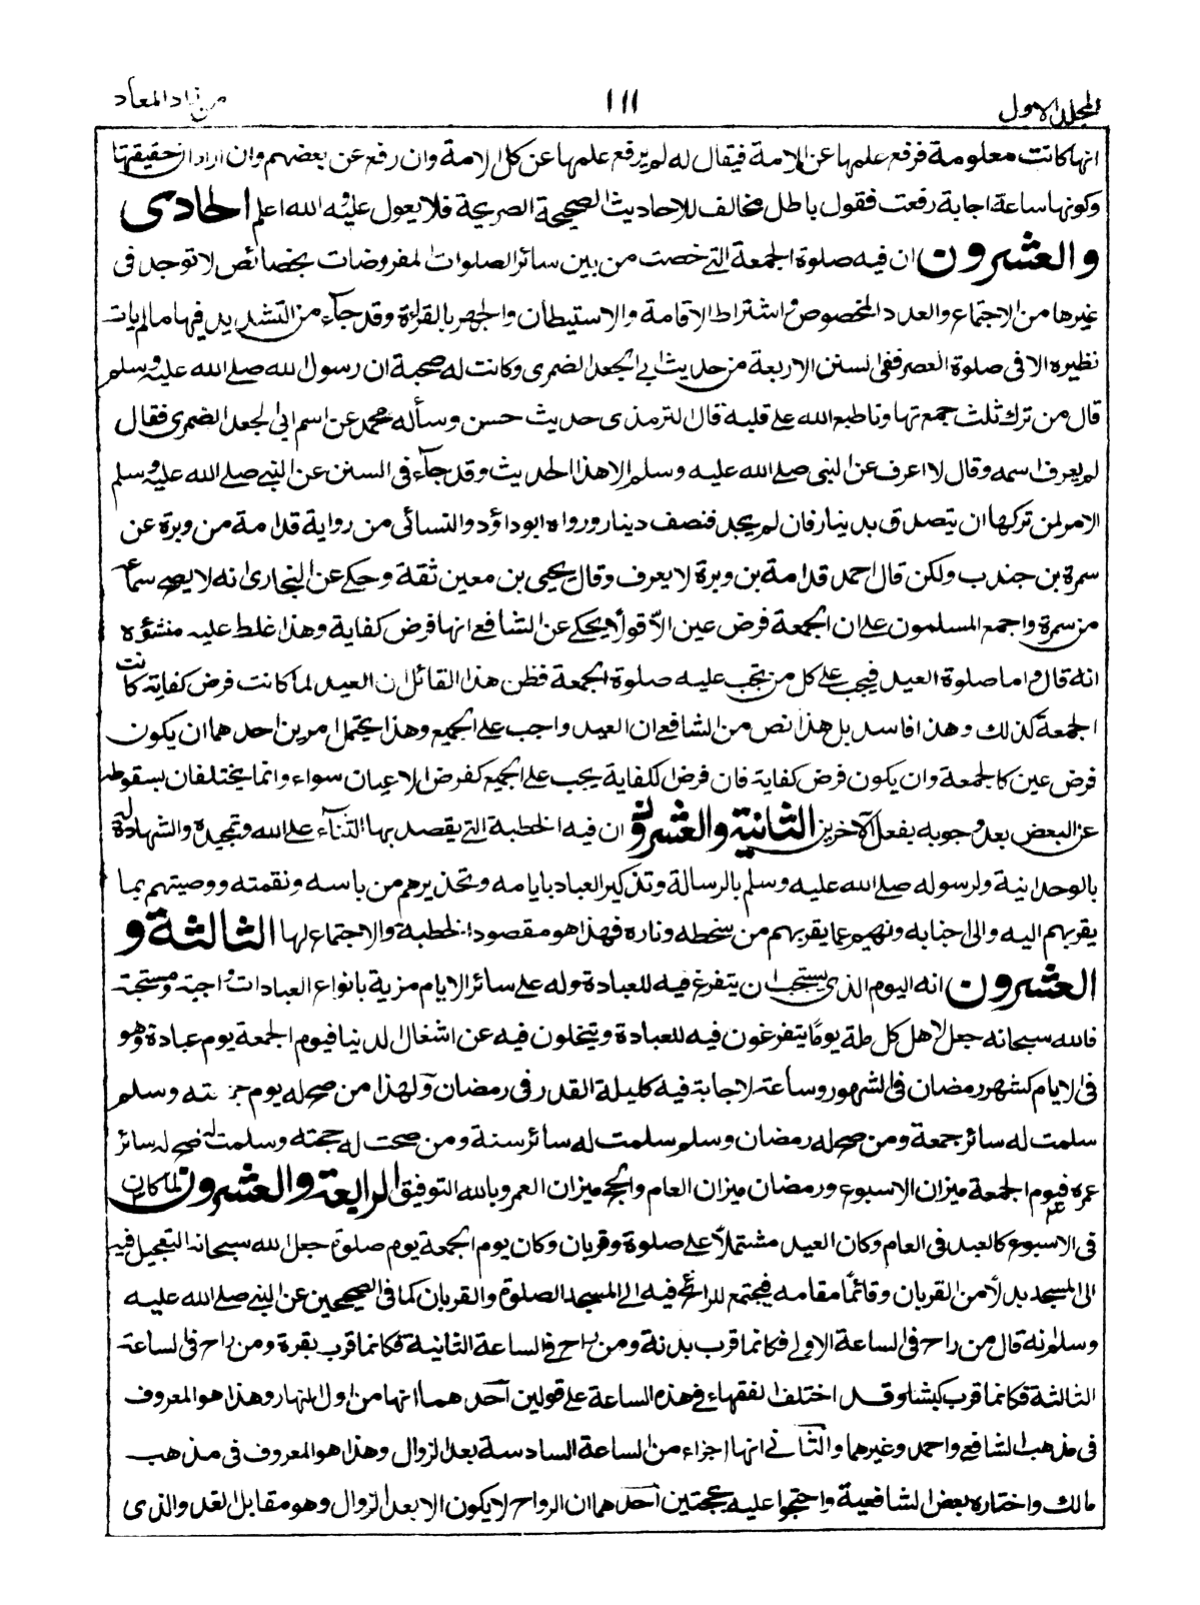 المجلد الاول ١١١ من زاد المعاد
انها كانت معلومة فرفع علمها عن الامة فيقال له لم يرفع علمها عن كل الامة وان رفع عن بعضهم وان اراد ان حقيقتها
وكونها ساعة اجابة رفعت فقول باطل مخالف للاحاديث الصحيحة الصريحة فلا يعول عليه والله اعلم الحادى
والعشرون ان فيه صلوة الجمعة التى خصت من بين سائر الصلوات المفروضات بخصائص لا توجد فى
غيرها من الاجتماع والعدد المخصوص واشتراط الاقامة والاستيطان والجهر بالقراءة وقد جاء من التشديد فيها ما لم يات
نظيره الا فى صلوة العصر ففى السنن الاربعة من حديث ابى الجعد الضمرى وكانت له صحبة ان رسول الله صلى الله عليه وسلم
قال من ترك ثلث جمع تهاونا طبع الله على قلبه قال الترمذى حديث حسن وسأله محمد عن اسم ابى الجعد الضمرى فقال
لم يعرف اسمه وقال لا اعرف عن النبى صلى الله عليه وسلم الا هذا الحديث وقد جاء فى السنن عن النبى صلى الله عليه وسلم
الامر لمن تركها ان يتصدق بدينار فان لم يجد فنصف دينار ورواه ابو داؤد والنسائى من رواية قدامة من وبرة عن
سمرة بن جندب ولكن قال احمد قدامة بن وبرة لا يعرف وقال يحيى بن معين ثقة وحكى عن البخارى انه لا يصح سماع
من سمرة واجمع المسلمون على ان الجمعة فرض عين الا قولا يحكى عن الشافعى انها فرض كفاية وهذا غلط عليه منشؤه
انه قال واما صلوة العيد فيجب على كل من تجب عليه صلوة الجمعة فظن هذا القائل ان العيد لما كانت فرض كفاية كانت
الجمعة كذلك وهذا فاسد بل هذا نص من الشافعى ان العيد واجب على الجميع وهذا يحتمل امرين احدهما ان يكون
فرض عين كالجمعة وان يكون فرض كفاية فان فرض الكفاية يجب على الجميع كفرض الاعيان سواء وانما يختلفان بسقوطه
عن البعض بعد وجوبه بفعل الآخرين الثانية والعشرون ان فيه الخطبة التى يقصد بها الثناء على الله وتمجيده والشهادة له
بالوحدانية ولرسوله صلى الله عليه وسلم بالرسالة وتذكير العباد بايامه وتحذيرهم من باسه ونقمته ووصيتهم بما
يقربهم اليه والى جنابه ونهيهم عما يقربهم من سخطه وناره فهذا هو مقصود الخطبة والاجتماع لها الثالثة و
العشرون انه اليوم الذى يستحب ان يتفرغ فيه للعبادة وله على سائر الايام مزية بانواع العبادات واجبة ومستحبة
فالله سبحانه جعل لاهل كل ملة يوما يتفرغون فيه للعبادة ويتخلون فيه عن اشغال الدنيا فيوم الجمعة يوم عبادة وهو
فى الايام كشهر رمضان فى الشهور وساعة الاجابة فيه كليلة القدر فى رمضان ولهذا من صح له يوم جمعته وسلم
سلمت له سائر جمعة ومن صح له رمضان وسلم سلمت له سائر سنة ومن صحت له حجته وسلمت له صح له سائر
عمره فيوم الجمعة ميزان الاسبوع ورمضان ميزان العام والحج ميزان العمر وبالله التوفيق الرابعة والعشرون لما كان
فى الاسبوع كالعيد فى العام وكان العيد مشتملا على صلوة وقربان وكان يوم الجمعة يوم صلوة جعل الله سبحانه التعجيل فيه
الى المسجد بدلا من القربان وقائما مقامه فيجتمع للرائح فيه الى المسجد الصلوة والقربان كما فى الصحيحين عن النبى صلى الله عليه
وسلم انه قال من راح فى الساعة الاولى فكانما قرب بدنة ومن راح فى الساعة الثانية فكانما قرب بقرة ومن راح فى الساعة
الثالثة فكانما قرب كبشا وقد اختلف الفقهاء فى هذه الساعة على قولين احدهما انها من اول النهار وهذا هو المعروف
فى مذهب الشافعى واحمد وغيرهما والثانى انها اجزاء من الساعة السادسة بعد الزوال وهذا هو المعروف فى مذهب
مالك واختاره بعض الشافعية واحتجوا عليه بحجتين احدهما ان الرواح لا يكون الا بعد الزوال وهو مقابل الغد والذى